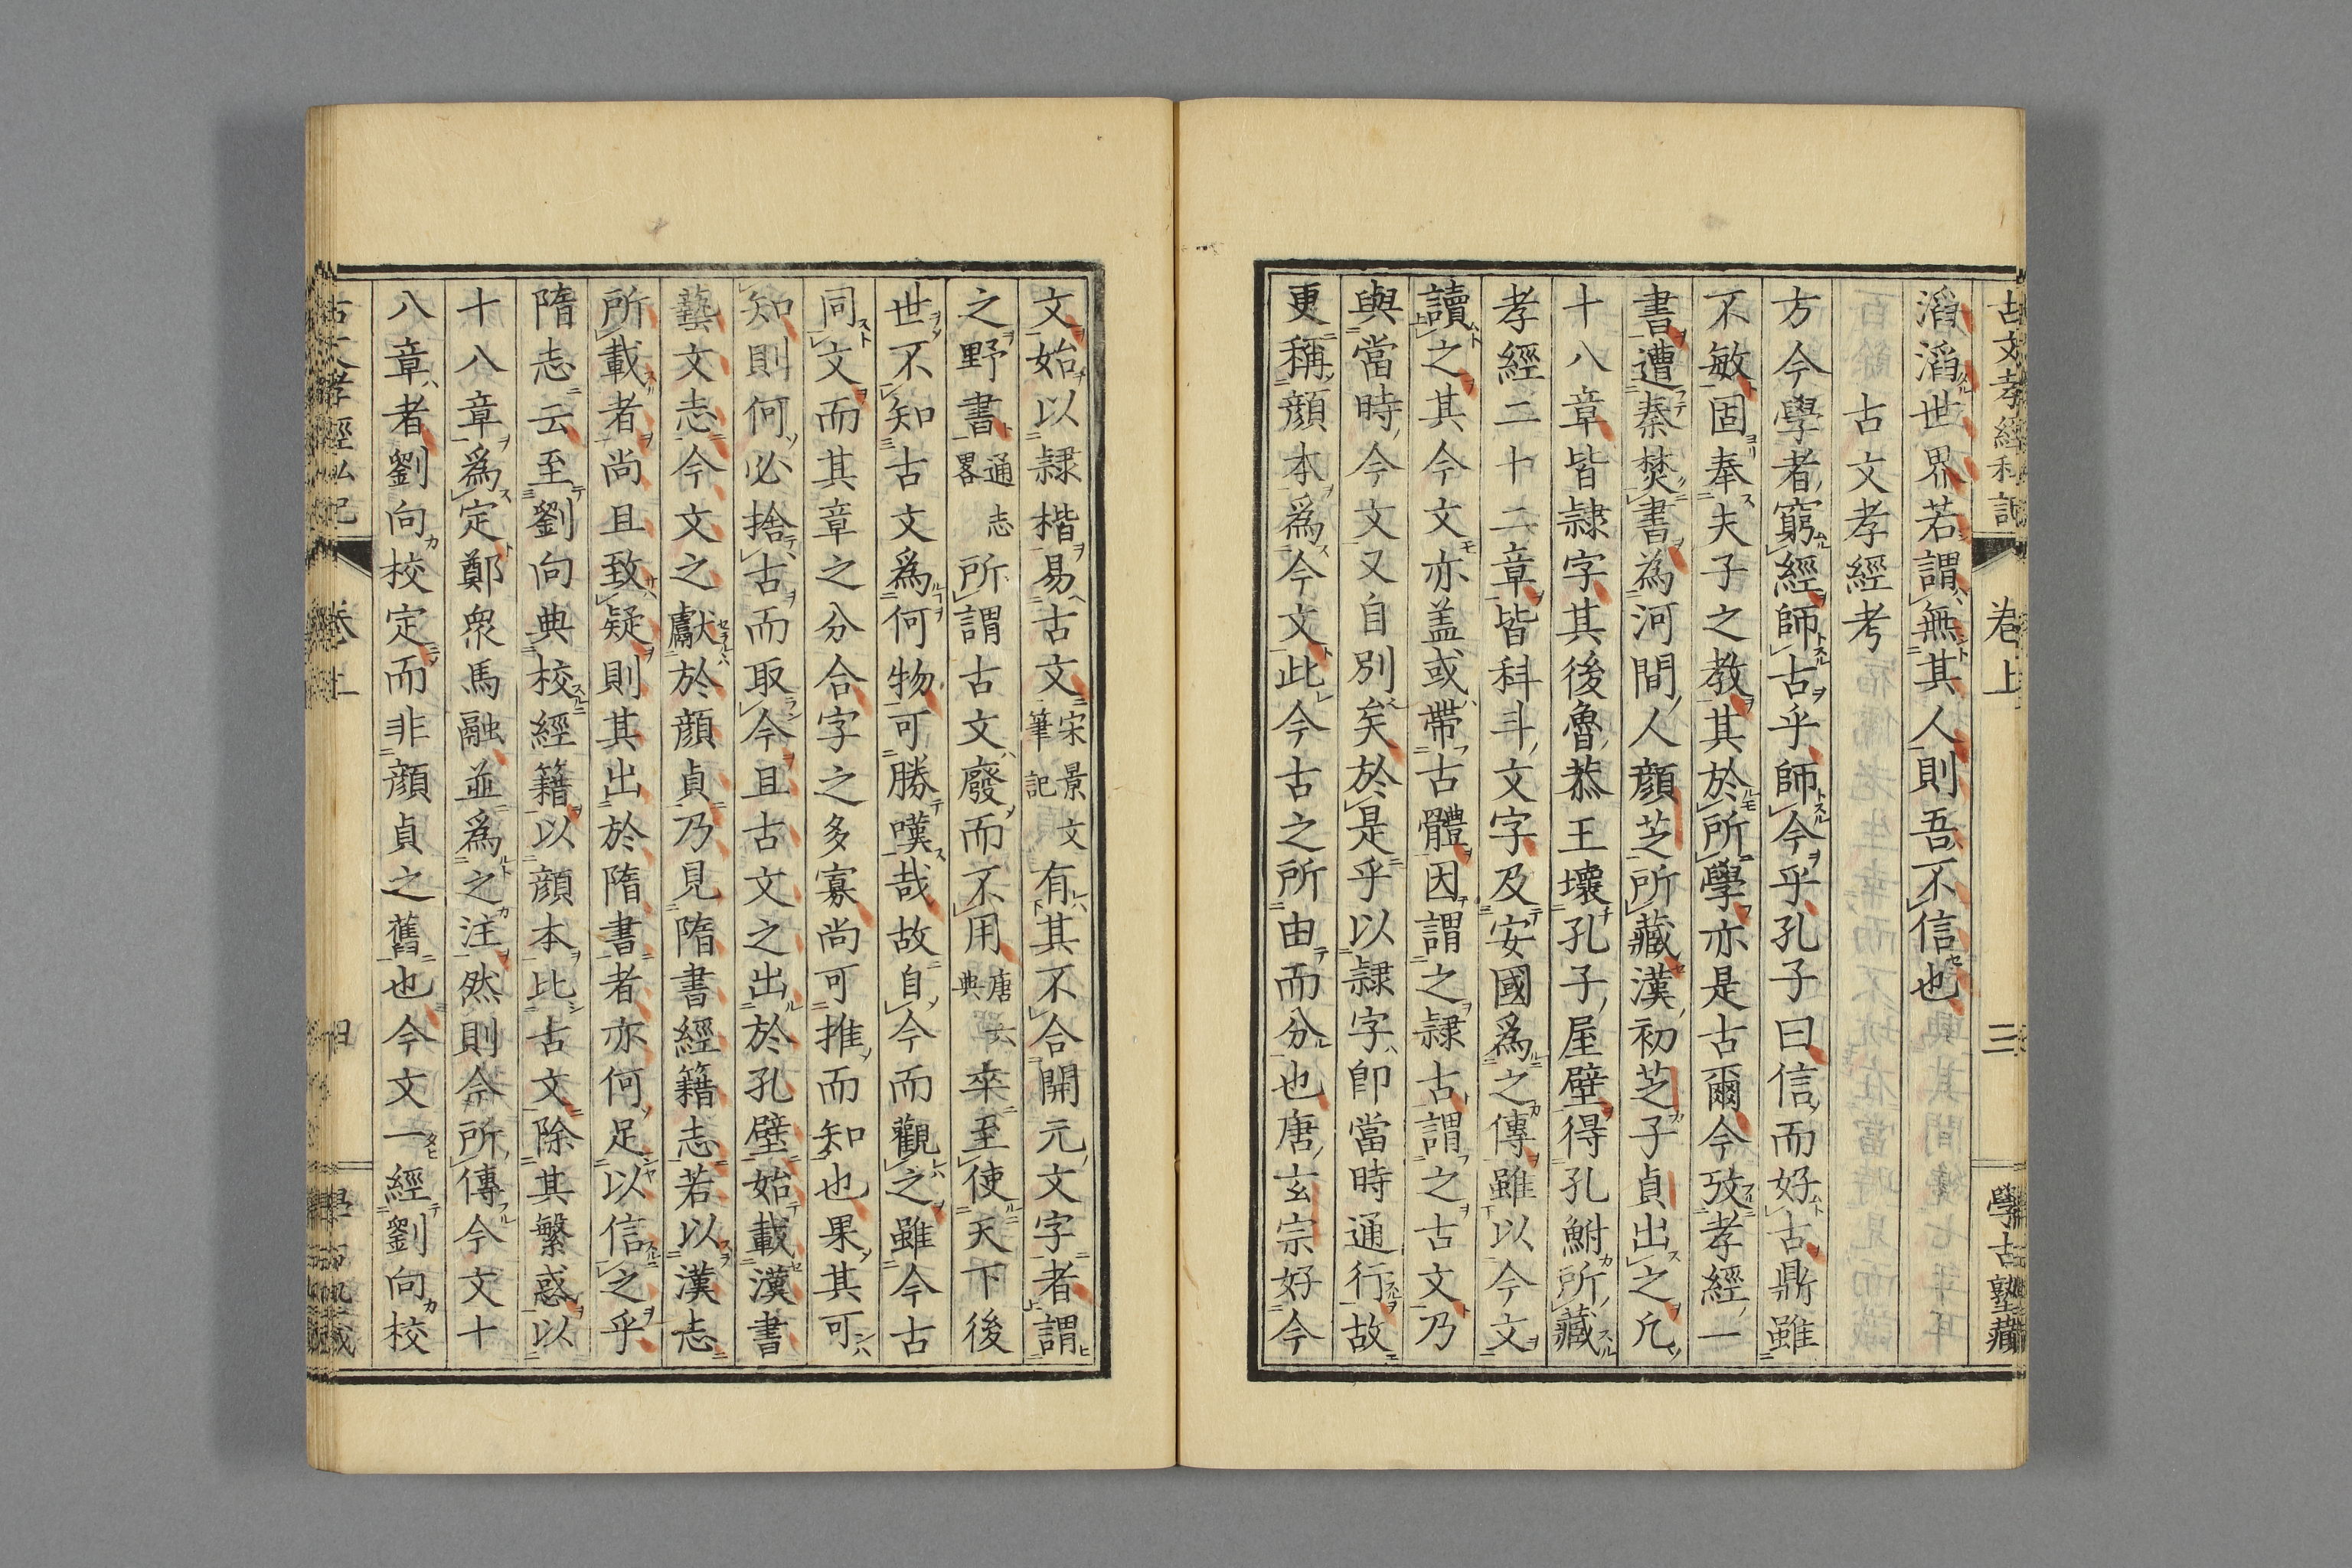 古文孝經私記
卷上
三
學古塾藏
滔滔世界若謂無其人則吾不信也
古文孝經考
方今學者窮經師古乎師今乎孔子曰信而好古鼎雖
不敏固奉夫子之教其於所學亦是古爾今攷孝經一
書遭秦焚書為河間人顏芝所藏漢初芝子貞出之凡
十八章皆隷字其後魯恭王壞孔子屋壁得孔鮒所藏
孝經二十二章皆科斗文字及安國爲之傳雖以今文
讀之其今文亦盖或帶古體因謂之隷古謂之古文乃
與當時今文又自別矣於是乎以隷字卽當時通行故
更稱顏本爲今文此今古之所由而分也唐玄宗好今
文始以隷楷易古文宋景文筆記有其不合開元文字者謂
之野書通志畧所謂古文廢而不用唐六典來至使天下後
世不知古文爲何物可勝嘆哉故自今而觀之雖今古
同文而其章之分合字之多寡尚可推而知也果其可
知則何必捨古而取今且古文之出於孔壁始載漢書
藝文志今文之獻於顏貞乃見隋書經籍志若以漢志
所載者尚且致疑則其出於隋書者亦何足以信之乎
隋志云至劉向典校經籍以顏本比古文除其繁惑以
十八章爲定鄭衆馬融並爲之注然則今所傳今文十
八章者劉向校定而非顏貞之舊也今文一經劉向校
古文孝經私記
卷上